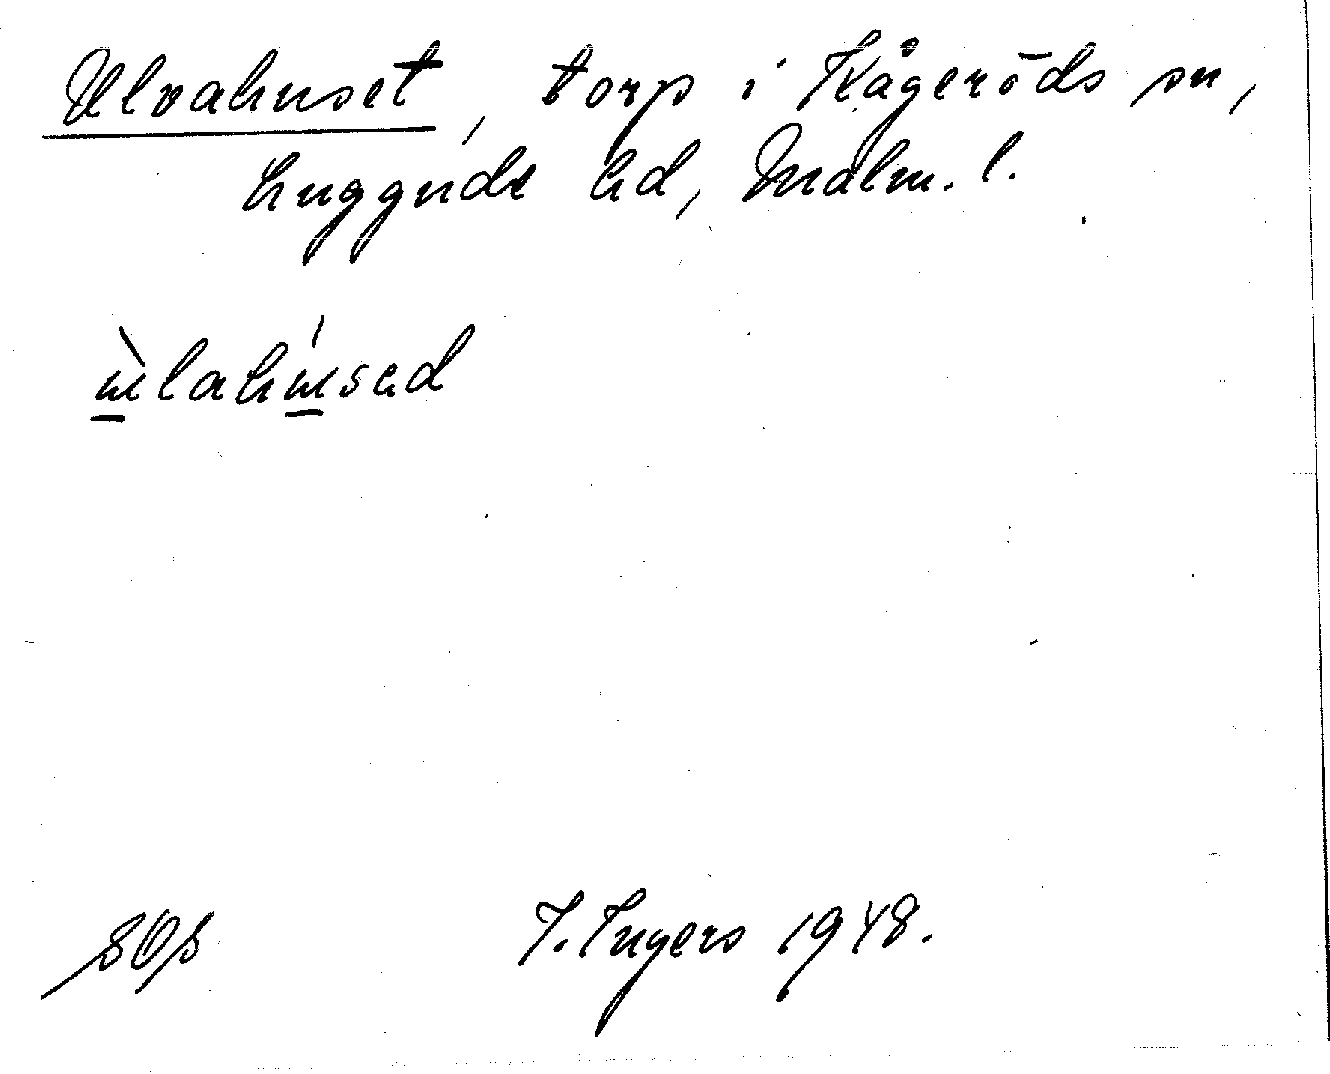 Ulvahuset, torp i Kågeröds sn,
Luggude hd, Malm. l.
ɯ̀lahɯ́sed
I. Ingers 1948.